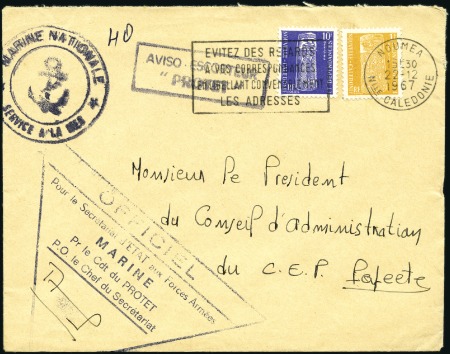 HD
MARINE NATIONALE
SERVICE A LA MER
AVISO-ESCORTEUR
"PROTET"
EVITEZ DES RETARDS
A VOS CORRESPONDANCES
EN LIBELLANT CONVENABLEMENT
LES ADRESSES
10F
NOUMEA
30
22-12
1967
Nlle CALEDONIE
Monsieur le President
du Conseil d'administration
du C.E.P. Papeete
OFFICIEL
Pour le Secrétariat d'ETAT aux Forces Armées
MARINE
Pr le Cdt du PROTET
P.O. le Chef du Secrétariat